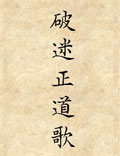 破迷正道歌